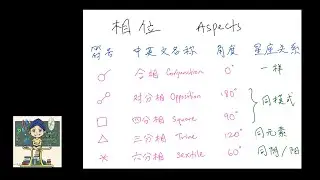 相位 Aspects
符号 中英文名称 角度 星座关系
☌ 合相 Conjunction 0° 一样
☍ 对分相 Opposition 180° 同模式
□ 四分相 Square 90°
△ 三分相 Trine 120° 同元素
✶ 六分相 Sextile 60° 同阴/阳